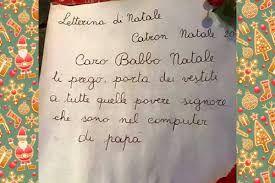 Letterina di Natale
Natale 20
Caro Babbo Natale
ti prego, porta dei vestiti
a tutte quelle povere signore
che sono nel computer
di papa